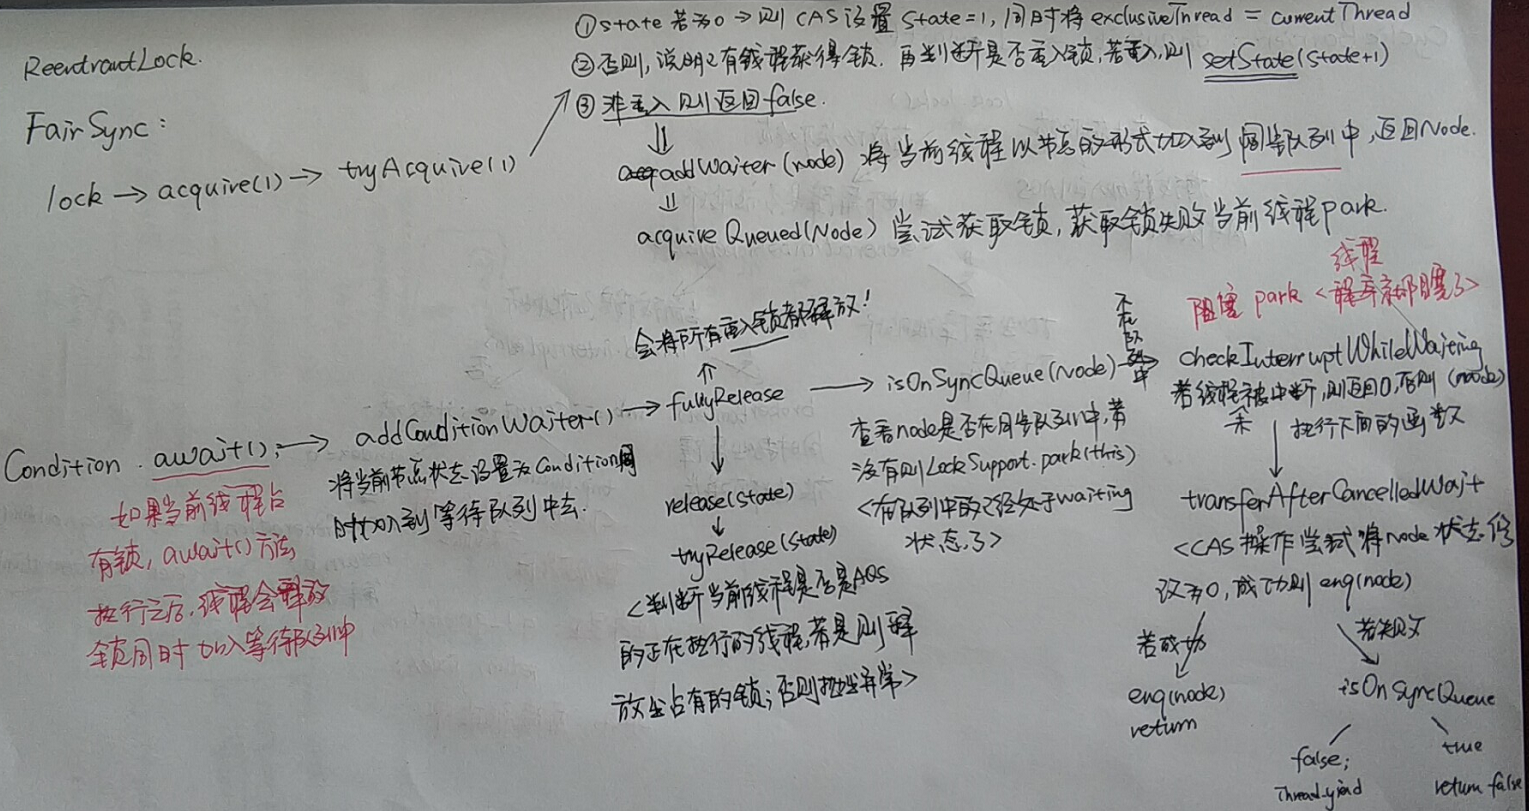 ReentrantLock.
FairSync:
lock → acquire(1) → tryAcquire(1)
①state若为0→则CAS设置state=1,同时将exclusiveThread = currentThread
②否则,说明已有线程获得锁.再判断是否重入锁,若重入,则setState(state+1)
③非重入则返回false.
⇓
addWaiter(node) 将当前线程以节点的形式加入到同步队列中,返回Node.
⇓
acquireQueued(Node) 尝试获取锁,获取锁失败当前线程park.
线程
阻塞 park <程序就阻塞了>
会将所有重入锁都释放!
↑
Condition.await(); → addConditionWaiter() → fullyRelease → isOnSyncQueue(node) 不在队列中 → checkInterruptWhileWaiting
(node)
如果当前线程占
有锁, await()方法
执行之后,线程会释放
锁同时加入等待队列中
将当前节点状态设置为Condition同
时加入到等待队列中去.
↓
release(state)
↓
tryRelease(state)
<判断当前线程是否是AQS
的正在执行的线程,若是则释
放全占有的锁;否则抛出异常>
查看node是否在同步队列中,若
没有则LockSupport.park(this)
<在队列中的已经处于waiting
状态了>
若线程未被中断,则返回0,否则
执行下面的函数
↓
transferAfterCancelledWait
<CAS操作尝试将node状态修
改为0,成功则enq(node)
若成功
enq(node)
return
若失败
isOnSyncQueue
false;
Thread.yield
true
return false